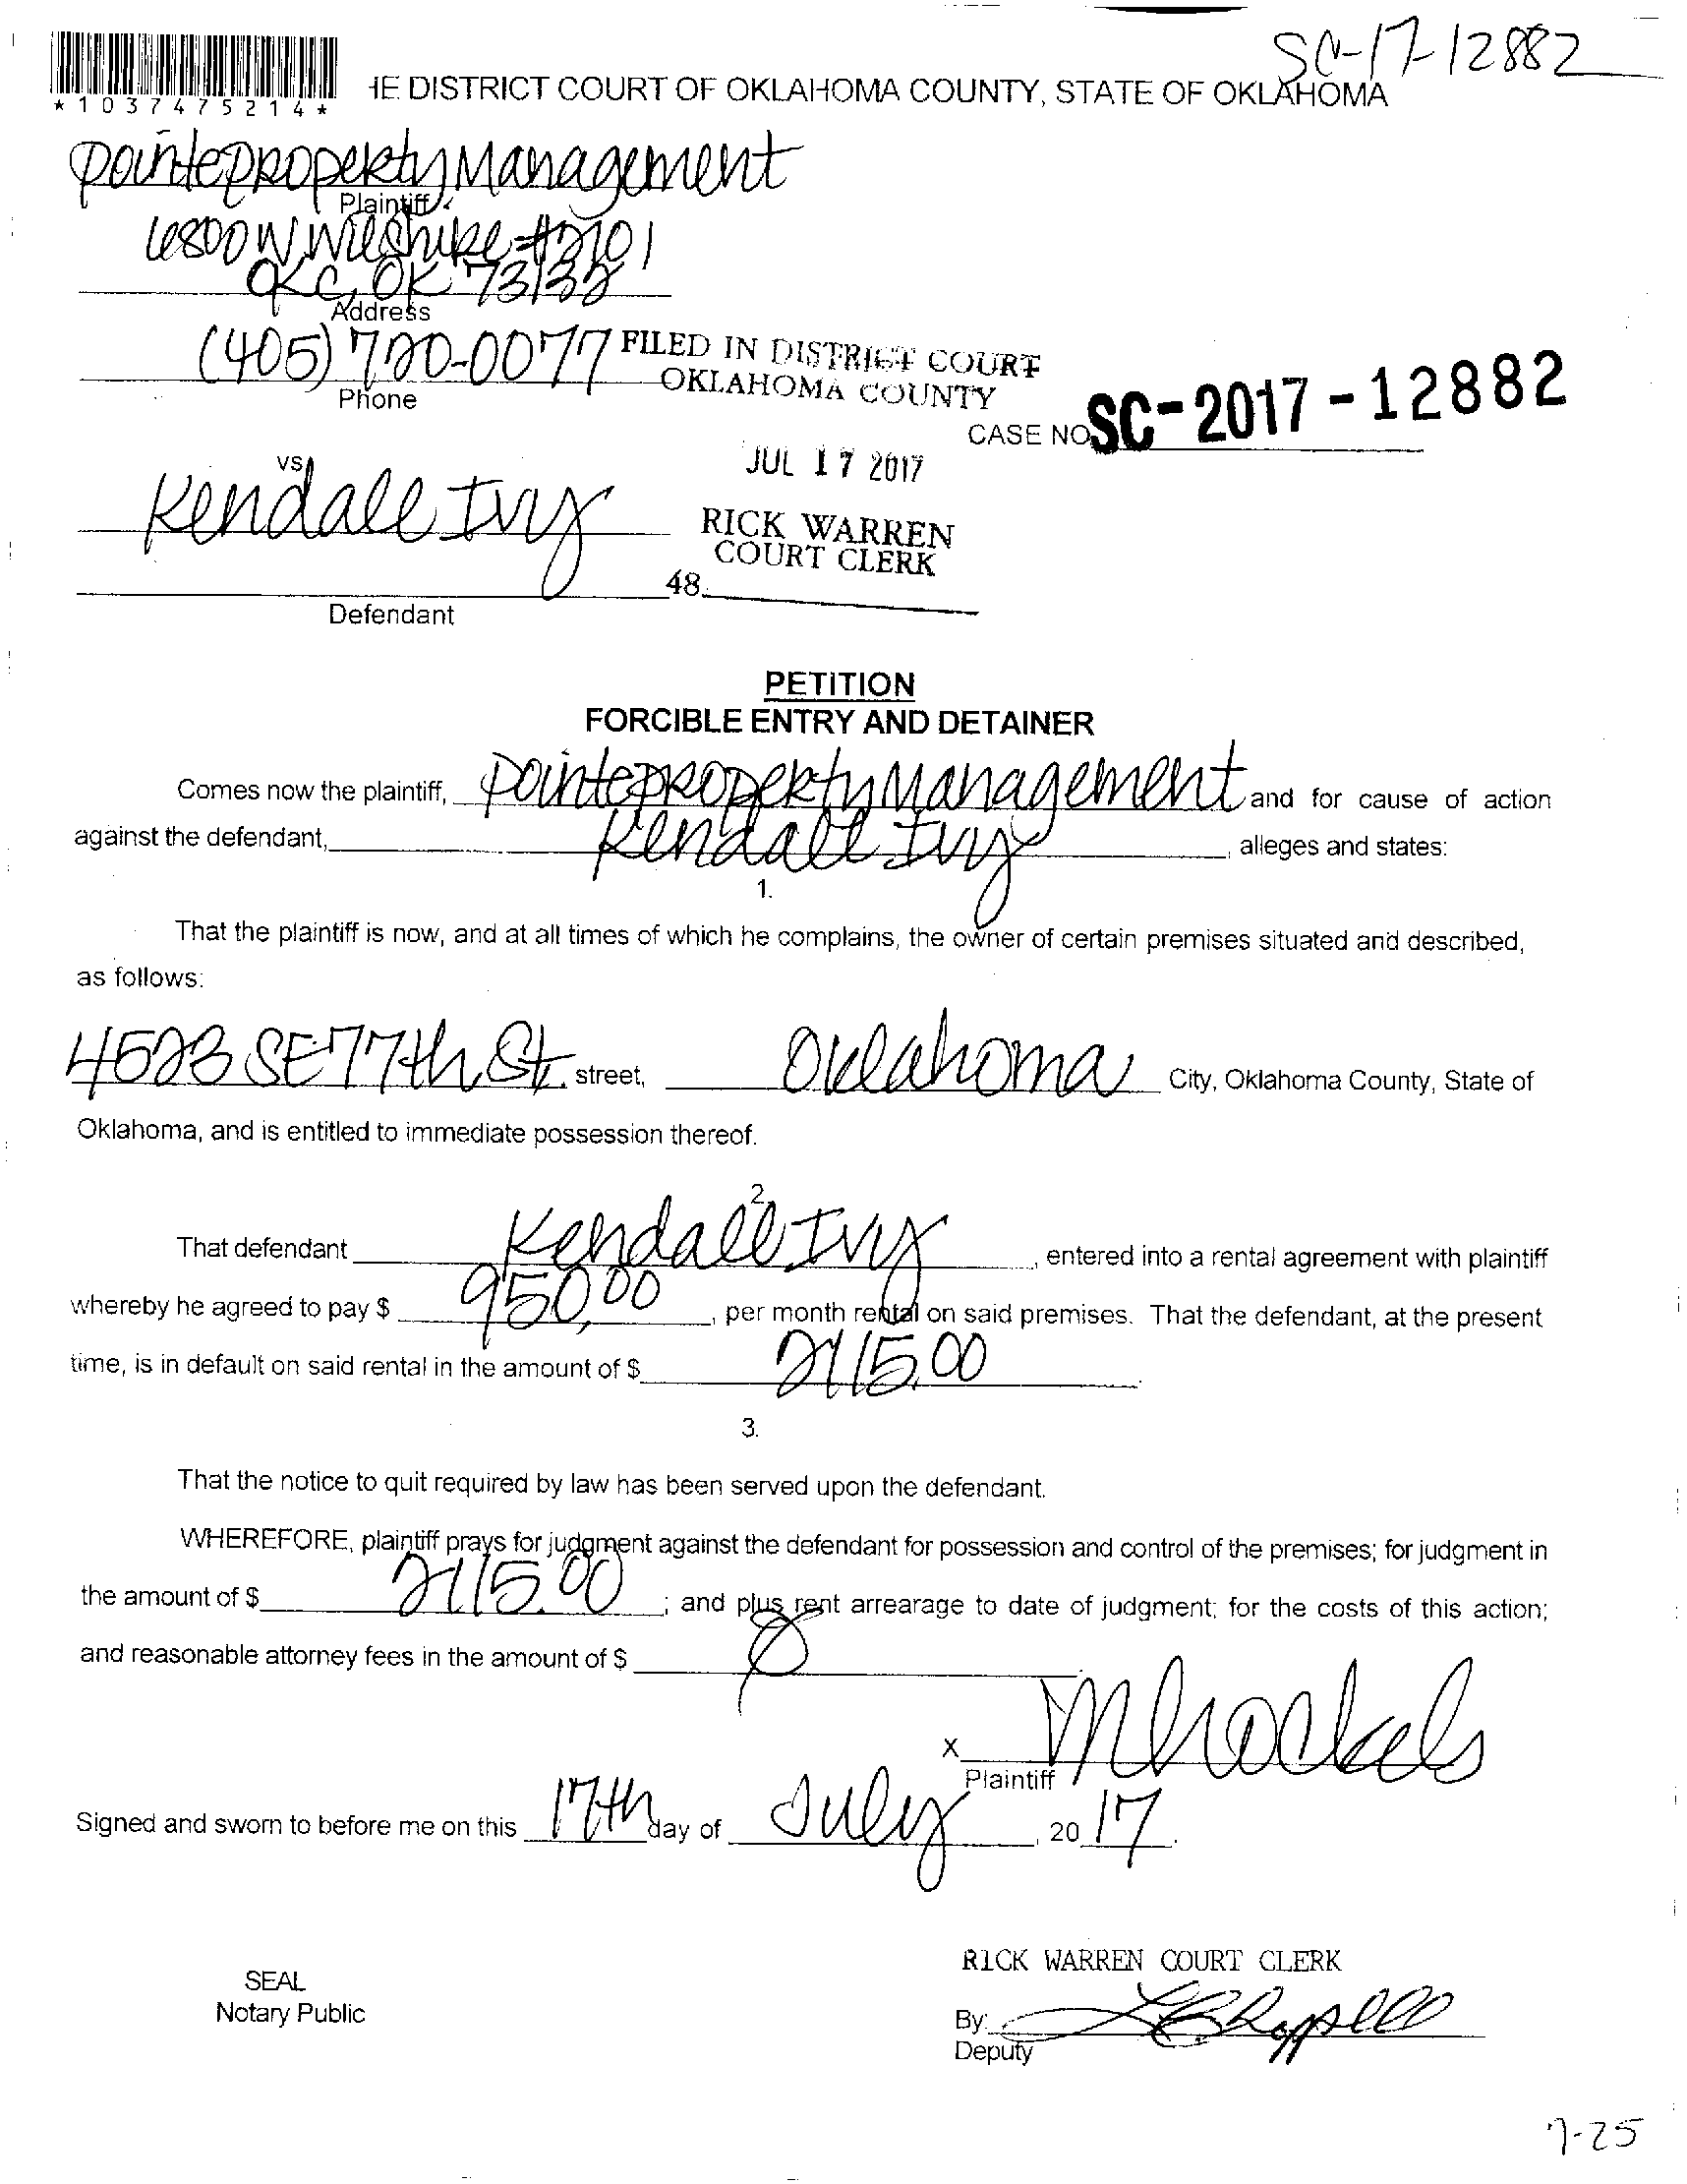 SC-17-12882
*1037475214*
IE DISTRICT COURT OF OKLAHOMA COUNTY, STATE OF OKLAHOMA
Pointe Property Management
Plaintiff
6800 W Wilshire #2101
OKC, OK 73132
Address
(405) 720-0077
Phone
FILED IN DISTRICT COURT
OKLAHOMA COUNTY
CASE NO. SC-2017-12882
JUL 17 2017
vs
Kendall Ivy
RICK WARREN
COURT CLERK
48
Defendant
PETITION
FORCIBLE ENTRY AND DETAINER
Comes now the plaintiff, Pointe Property Management and for cause of action
against the defendant, Kendall Ivy, alleges and states:
1.
That the plaintiff is now, and at all times of which he complains, the owner of certain premises situated and described,
as follows:
4523 SE 77th St. street, Oklahoma City, Oklahoma County, State of
Oklahoma, and is entitled to immediate possession thereof.
2.
That defendant Kendall Ivy, entered into a rental agreement with plaintiff
whereby he agreed to pay $ 950.00, per month rental on said premises. That the defendant, at the present
time, is in default on said rental in the amount of $ 2115.00.
3.
That the notice to quit required by law has been served upon the defendant.
WHEREFORE, plaintiff prays for judgment against the defendant for possession and control of the premises; for judgment in
the amount of $ 2115.00; and plus rent arrearage to date of judgment; for the costs of this action;
and reasonable attorney fees in the amount of $ 0
x
Plaintiff
Signed and sworn to before me on this 17th day of July, 2017.
RICK WARREN COURT CLERK
SEAL
Notary Public
By:
Deputy
7-25